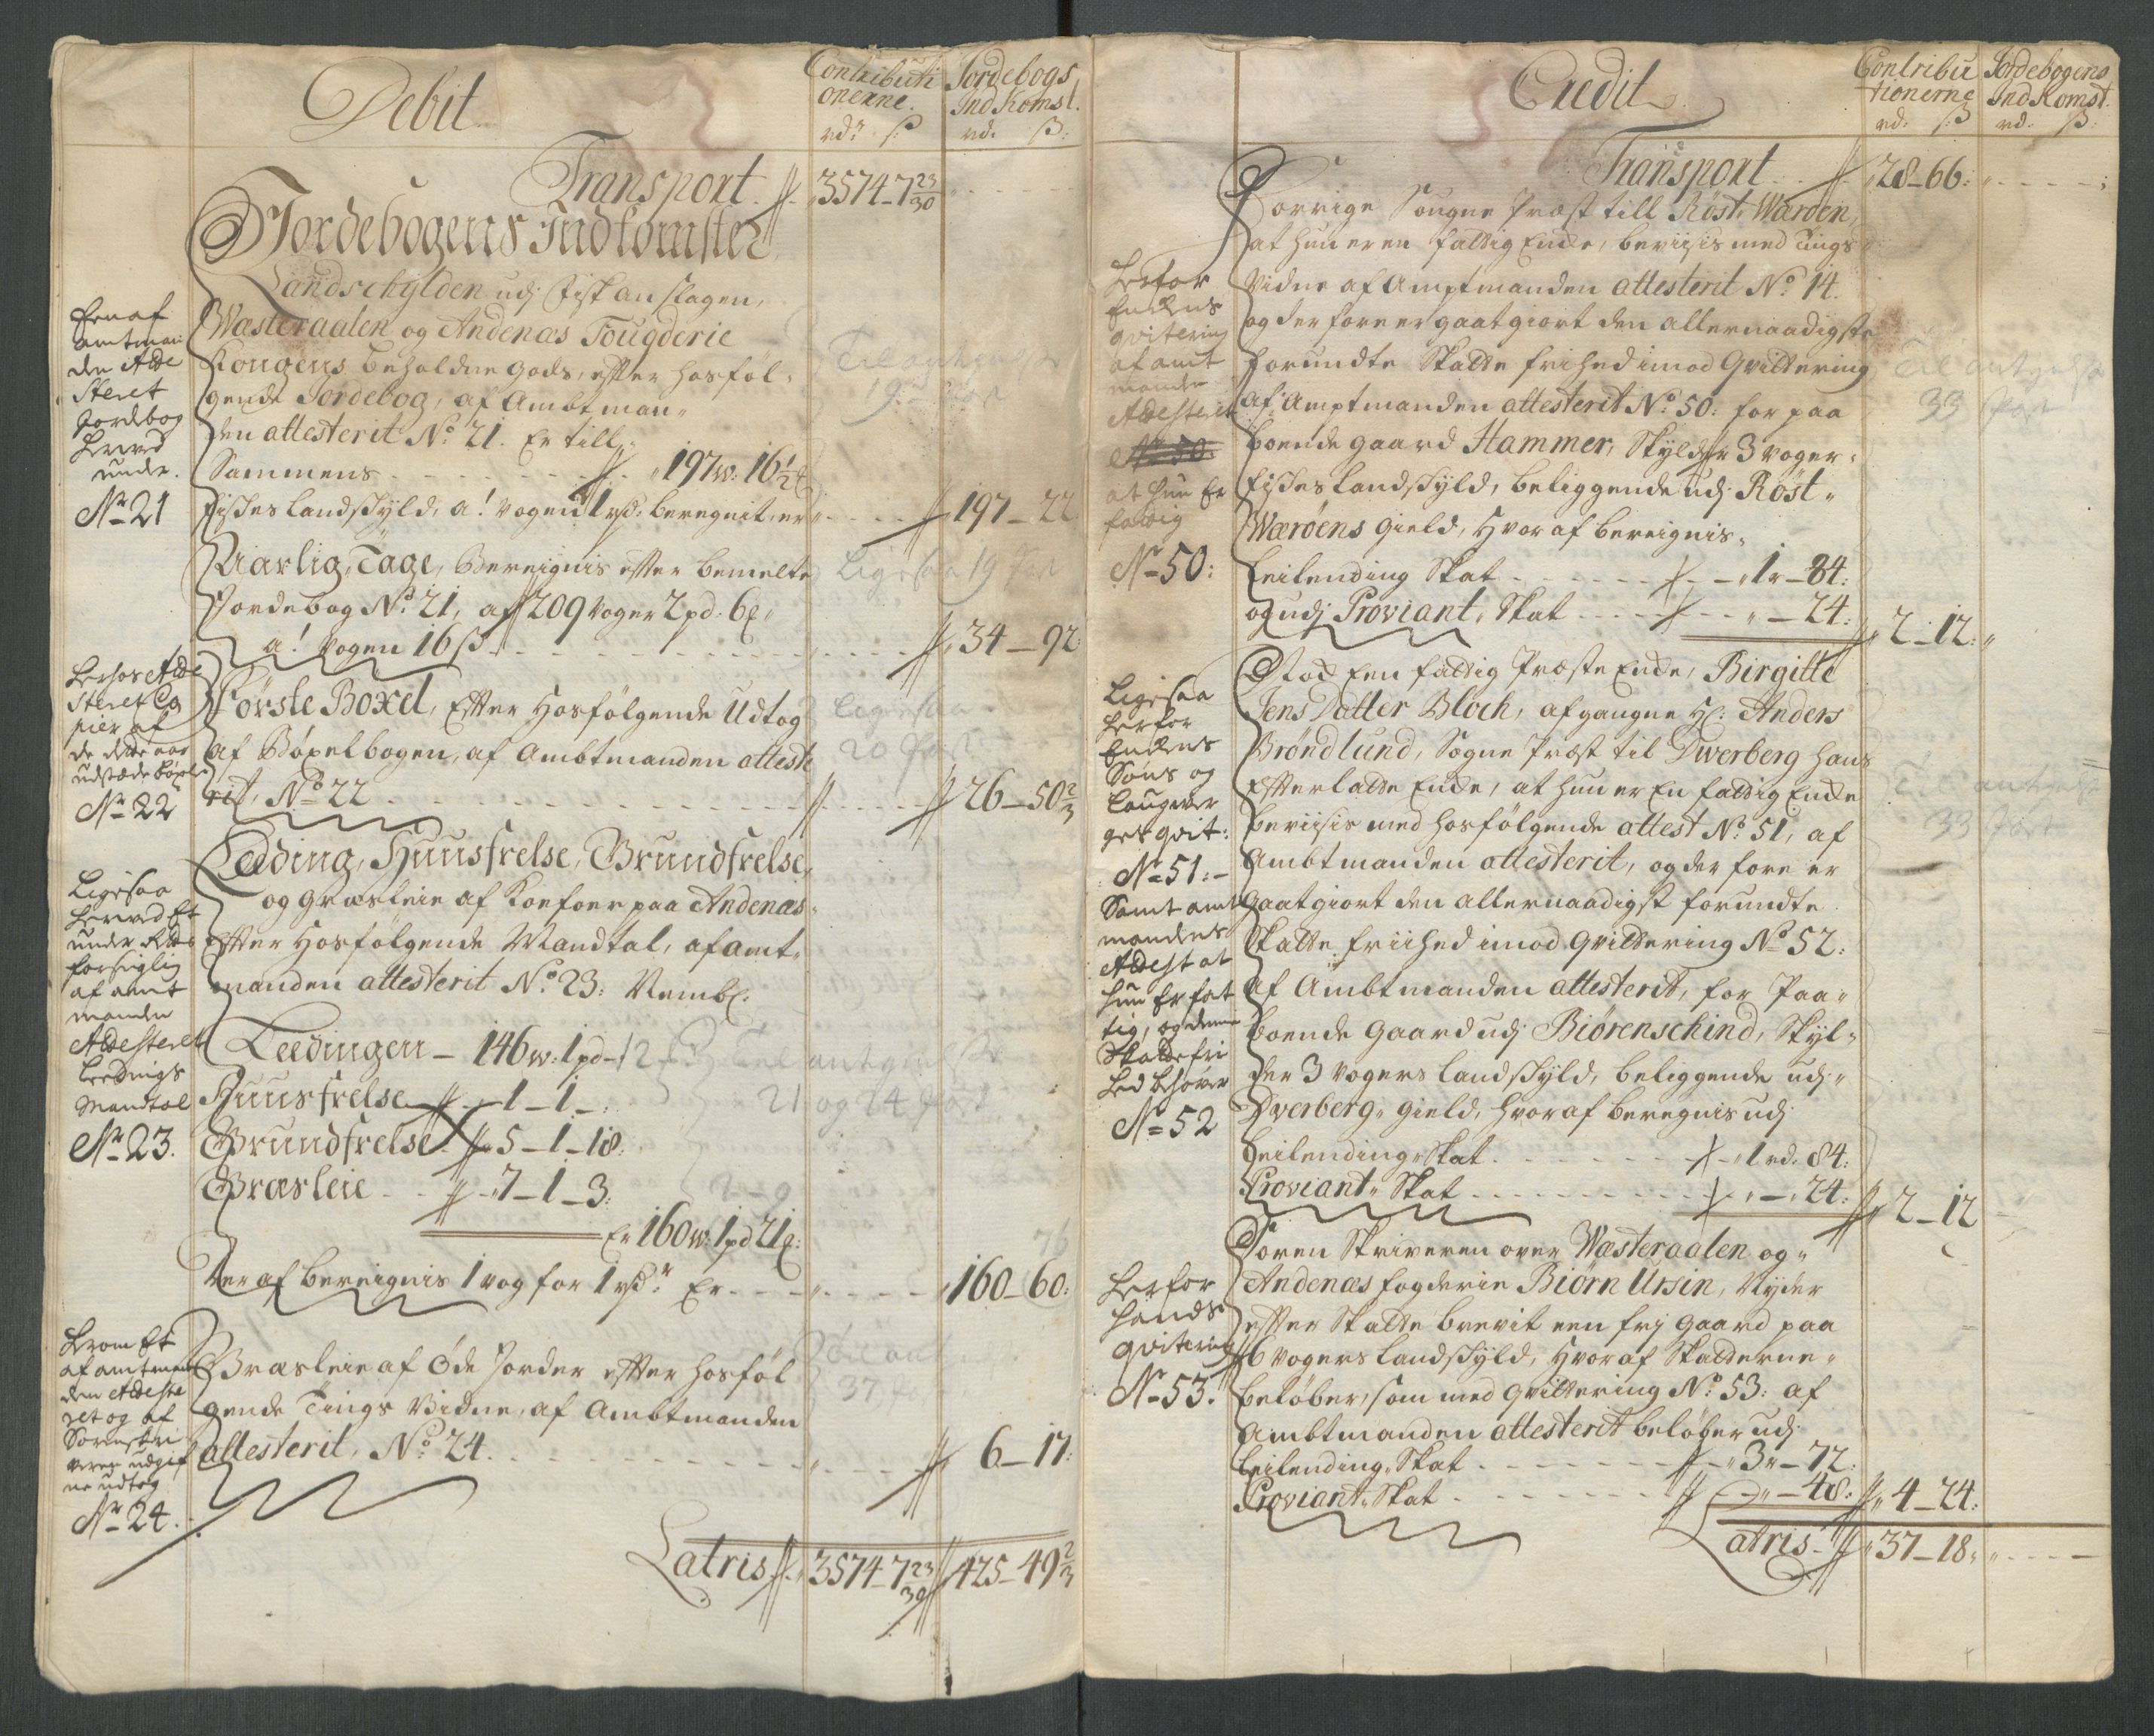 Debit
Contributi
onerne.
rdr. ß
Jordebogs
IndKomst.
rd. ß:
Transport 3574-7 23/30
Jordebogens Indkomster
Landschylden udj fisk anslagen,
Wæsteraalen og Andenæs Fougderie
Kongens beholdne gods, efter hosføl-
gende Jordebog, af Ambtman-
den attesterit No. 21. Er till-
Sammens 197 w: 16 1/2
fiskes landskyld, a! vogen 1 rd: beregnit, er 197-22
Aarlig Tage, Bereignis efter bemelte
Jordebog No. 21, af 209 voger 2 pd: 6
a! vogen 16 ß 34-92
Første Boxel, Efter hosfølgende Udtog
af Böxelbogen, af Ambtmanden atteste
rit, No. 22 26-50 2/3
Leeding, Huusfrelse, Grundfrelse,
og græsleie af Korfoer paa Andenæs
Efter hosfølgende Mandtal, af amt-
manden attesterit No. 23: Nembl.
Leedingen - 146 w: 1 pd - 12
Huusfrelse 1-1-
Grundfrelse 5-1-18:
Græsleie 7-1-3:
Er 160 w: 1 pd 21
Der af bereignis 1 vog for 1 rdr: Er 160-60:
Græsleie af Öde Jorder efter hosføl
gende Tings Vidne, af Ambtmanden
attesterit, No. 24. 6-17:
Latris 3574-7 23/30 425-49 2/3
Een af
amtman
den Atte
steret
Jordebog
herved
under.
No 21
Herhos Atte
steret Co
pier af
de dette aar
udstæde böxler
No 22
Ligesaa
herved Et
under Retts
forseigling
af amt
manden
Attesteret
Leedings
Mandtal
No 23.
Herom Et
af amtman
den Atteste
ret og af
Sorenskri
veren udgif
ne udtog
No 24.
Til antegnelse
19de Post
Ligesaa 19 Post
Ligesaa
20 Post
Til antegnelse
21 og 24 Post
37
Credit
Contribu
tionerne
rd: ß
Jordebogens
IndKomst.
rd. ß:
Transport 28-66:
Forrige Sougne Præst till Röst, Wæröen,
at hun er en fattig Encke, beviisis med Tings
Vidne af Amptmanden attesterit No. 14.
og derfore er gaatgiort den allernaadigste
forundte Skatte frihed imod Qvittering
af Amptmanden attesterit No. 50: for paa
boende gaard Hammer, Skylder 3 voger
fiskes landskyld, beliggende udj Röst-
Wæröens gield, Hvor af bereignis-
Leilending Skat 1 r - 84:
og udj Proviant Skat - 24: 2-12:
Nock Een fattig Præste Encke, Birgitte
Jens Datter Bloch, afgangne Hr. Anders
Bröndlund, Sogne Præst til Dwerberg hans
Efterlatte Encke, at hun er En fattig Encke
beviisis med hosfølgende attest No. 51, af
Ambtmanden attesterit, og der fore er
gaatgiort den allernaadigst forundte
Skatte friihed imod Qvittering No. 52:
af Ambtmanden attesterit, for Paa-
boende gaard udj Biörenschind, Skyl-
der 3 vogers landskyld, beliggende udj-
Dverberg gield, hvor af beregnis udj
Leilending Skat 1 rd. 84:
Proviant Skat - 24: 2-12
Soren Skriveren over Wæsteraalen og
Andenæs fogderie Biörn Ursin, Nyder
efter Skatte brevit een frj gaard paa
6 vogers landskyld, Hvor af Skatterne
beløber, som med Qvittering No. 53: af
Ambtmanden attesterit beløber udj
Leilending Skat 3 r - 72:
Proviant Skat - 48: 4-24:
Latris 37-18
Herfor
Enckens
qvitering
af amt
manden
Attesterit
No 50:
at hun Er
fattig
No 50:
Ligesaa
herfor
Enckens
Söns og
Laugver
ges qvit:
No 51:-
Samt amt
mandens
Attest at
hun Er fat
tig, og denne
Skattefri
hed behøver
No 52
Herfor
hands
qvitering
No 53.
Til antegnelse
33 Post
Til antegnelse
33 Post